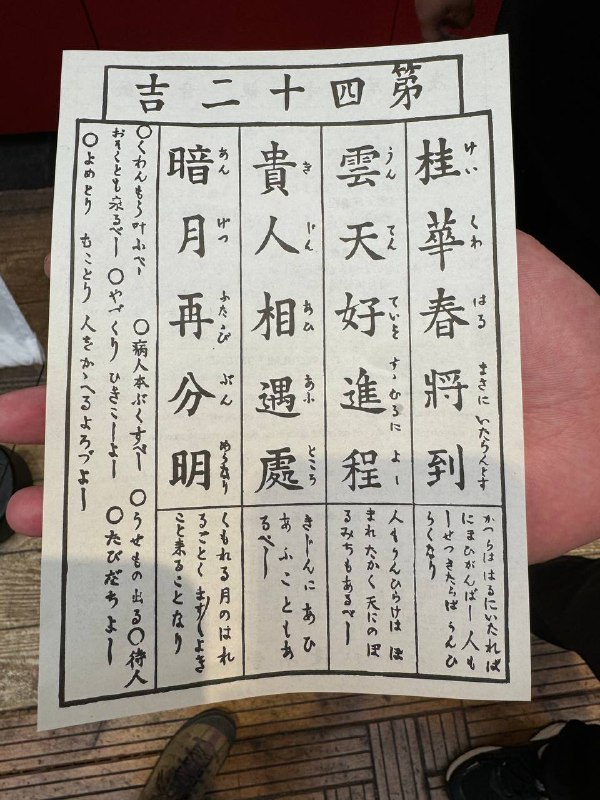 第四十二吉
けいくわ はる まさに いたらんとす
桂華春將到
かつらは はるにいたれば
にほひがんばし 人も
しせつきたらば うんひ
らくなり
うんてん ていを すゝむるに よし
雲天好進程
人もうんひらけは ほ
まれたかく天にのぼ
るみちもあるべし
きじん あひ あふ ところ
貴人相遇處
きじんに あひ
あふこともあ
るべし
あんげつ ふたゝび ぶん めうなり
暗月再分明
くもれる月のはれ
るごとく ます〳〵よき
こと来ることなり
〇くわんもう叶ふべし 〇病人本ぶくすべし 〇うせもの出る〇待人
おそくとも来るべし 〇やづくり ひきこしよし 〇たびだちよし
〇よめとり むことり 人をかゝへるよろづよし